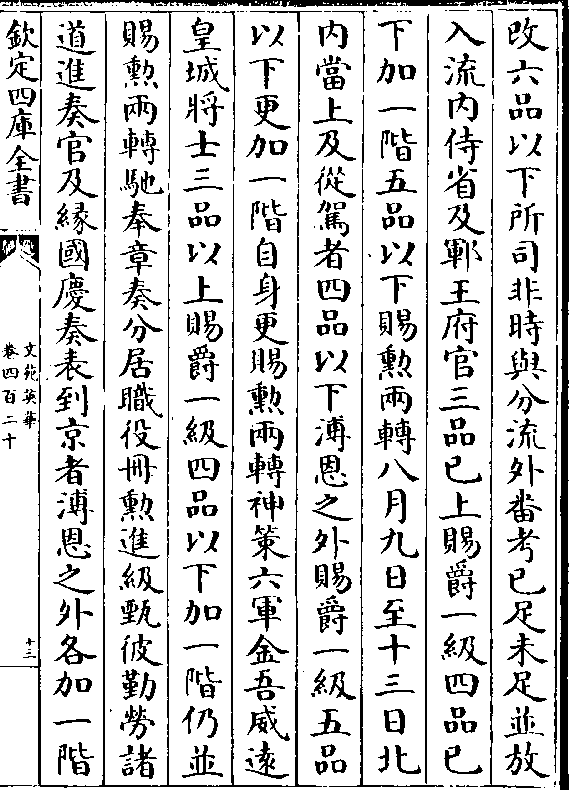 改六品以下所司非時與分流外畨考已足未足並放
入流内侍省及鄆王府官三品已上賜爵一級四品已
下加一階五品以下賜勲兩轉八月九日至十三日北
内當上及從駕者四品以下溥恩之外賜爵一級五品
以下更加一階自身更賜勲兩轉神策六軍金吾威逺
皇城將士三品以上賜爵一級四品以下加一階仍並
賜勲兩轉馳奉章奏分居職役冊勲進級甄彼勤勞諸
道進奏官及縁國慶奏表到京者溥恩之外各加一階
欽定四庫全書
文苑英華
卷四百二十
十三